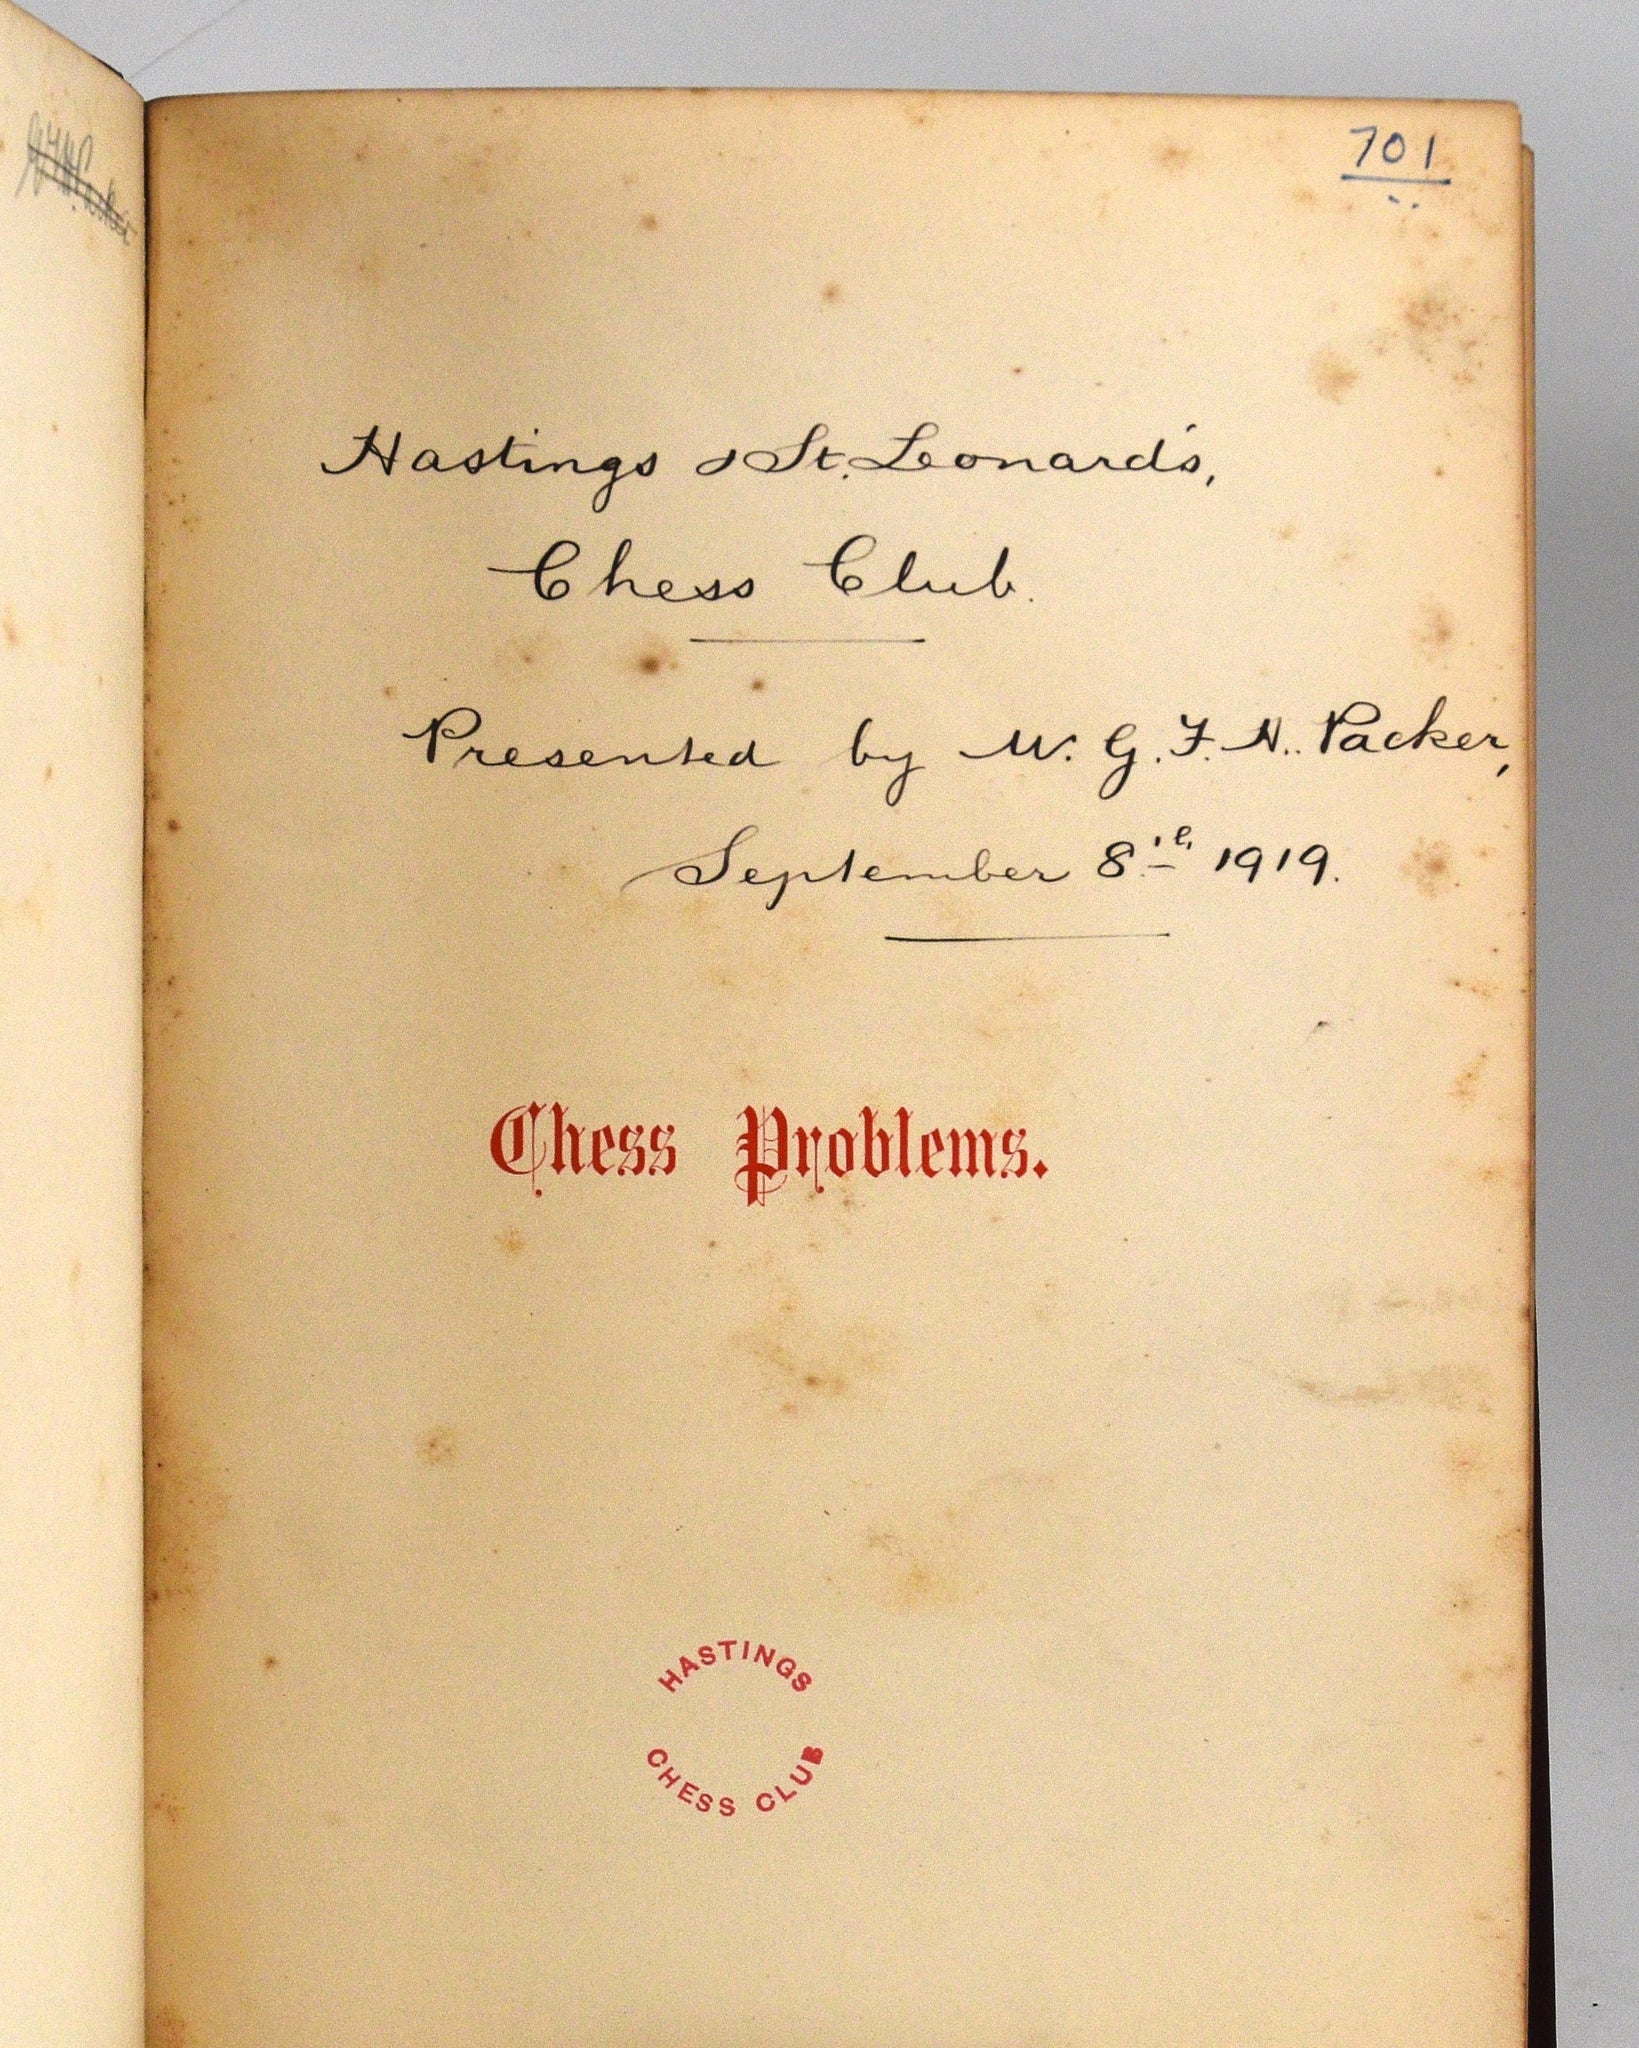 701
Hastings & St. Leonard's,
Chess Club.
Presented by W. G. F. H. Packer,
September 8th 1919.
Chess Problems.
HASTINGS
CHESS CLUB